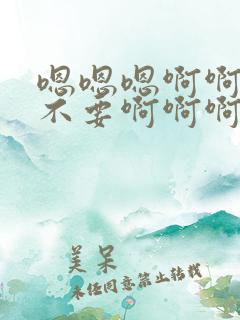 嗯嗯嗯啊啊
不要啊啊啊
美呆
未经同意禁止转载